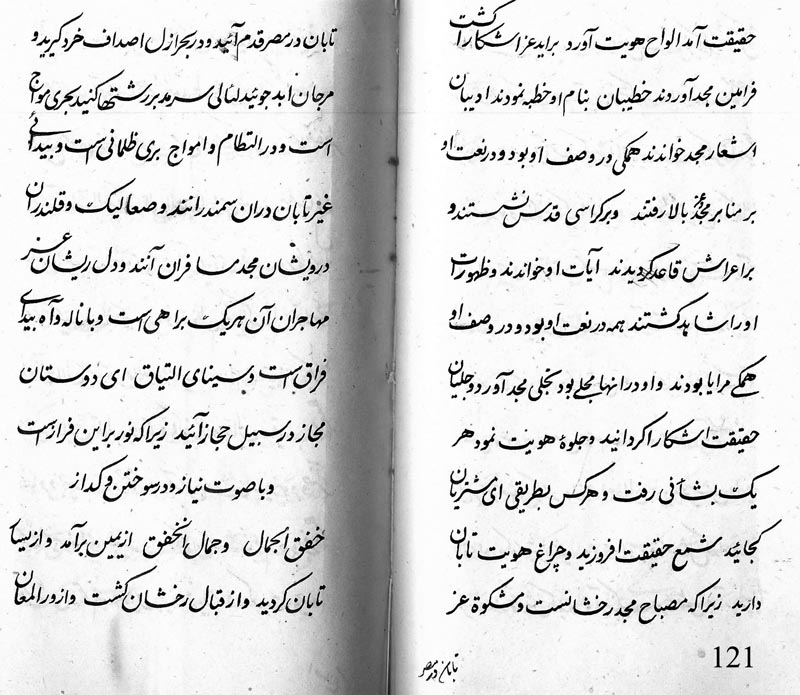 حقیقت آمد الواح هویت آورد براید عز اشکارا گشت
فرامین مجد آوردند خطیبان بنام او خطبه نمودند ادیبان
اشعار مجد خواندند همگی در وصف او بود و در نعت او
بر منابر مجد و عز بالا رفتند و بر کراسی قدس نشستند و
بر اعراش قاعد گردیدند آیات او خواندند و ظهورات
او را شاهد گشتند همه در نعت او بود و در وصف او
همگی مرایا بودند و او در انها مجلی بود تجلی مجد آورد و جلیان
حقیقت اشکارا گردانید و جلوهٔ هویت نمود هر
یک بشأنی رفت و هر کس بطریقی ای مشتریان
کجائید شمع حقیقت افروزید و چراغ هویت تابان
دارید زیرا که مصباح مجد رخشانست و مشکوة عز
تابان در مصر
121
تابان در مصر قدم آئید و در بحر ازل اصداف خرد گیرید و
مرجان ابد جوئید لئالی سرمد بر رشتها کنید بحری مواج
است و در التطام و امواج بری ظلمانی است و بیدای
غیر تابان دران سمندر رانند و صعالیک و قلندران
درویشان مجد مسافران آنند و دل ریشان عز
مهاجران آن هر یک براهی است و با ناله و آه بیدای
فراق است و سینای التیاق ای دوستان
مجاز در سبیل حجاز آئید زیرا که نور بر این فراز است
و با صوت نیاز و در سوختن و گداز
خفق الجمال و جمال الخفق از یمین برآمد و از یسار
تابان گردید و از قبال رخشان گشت و از ورا لمعان